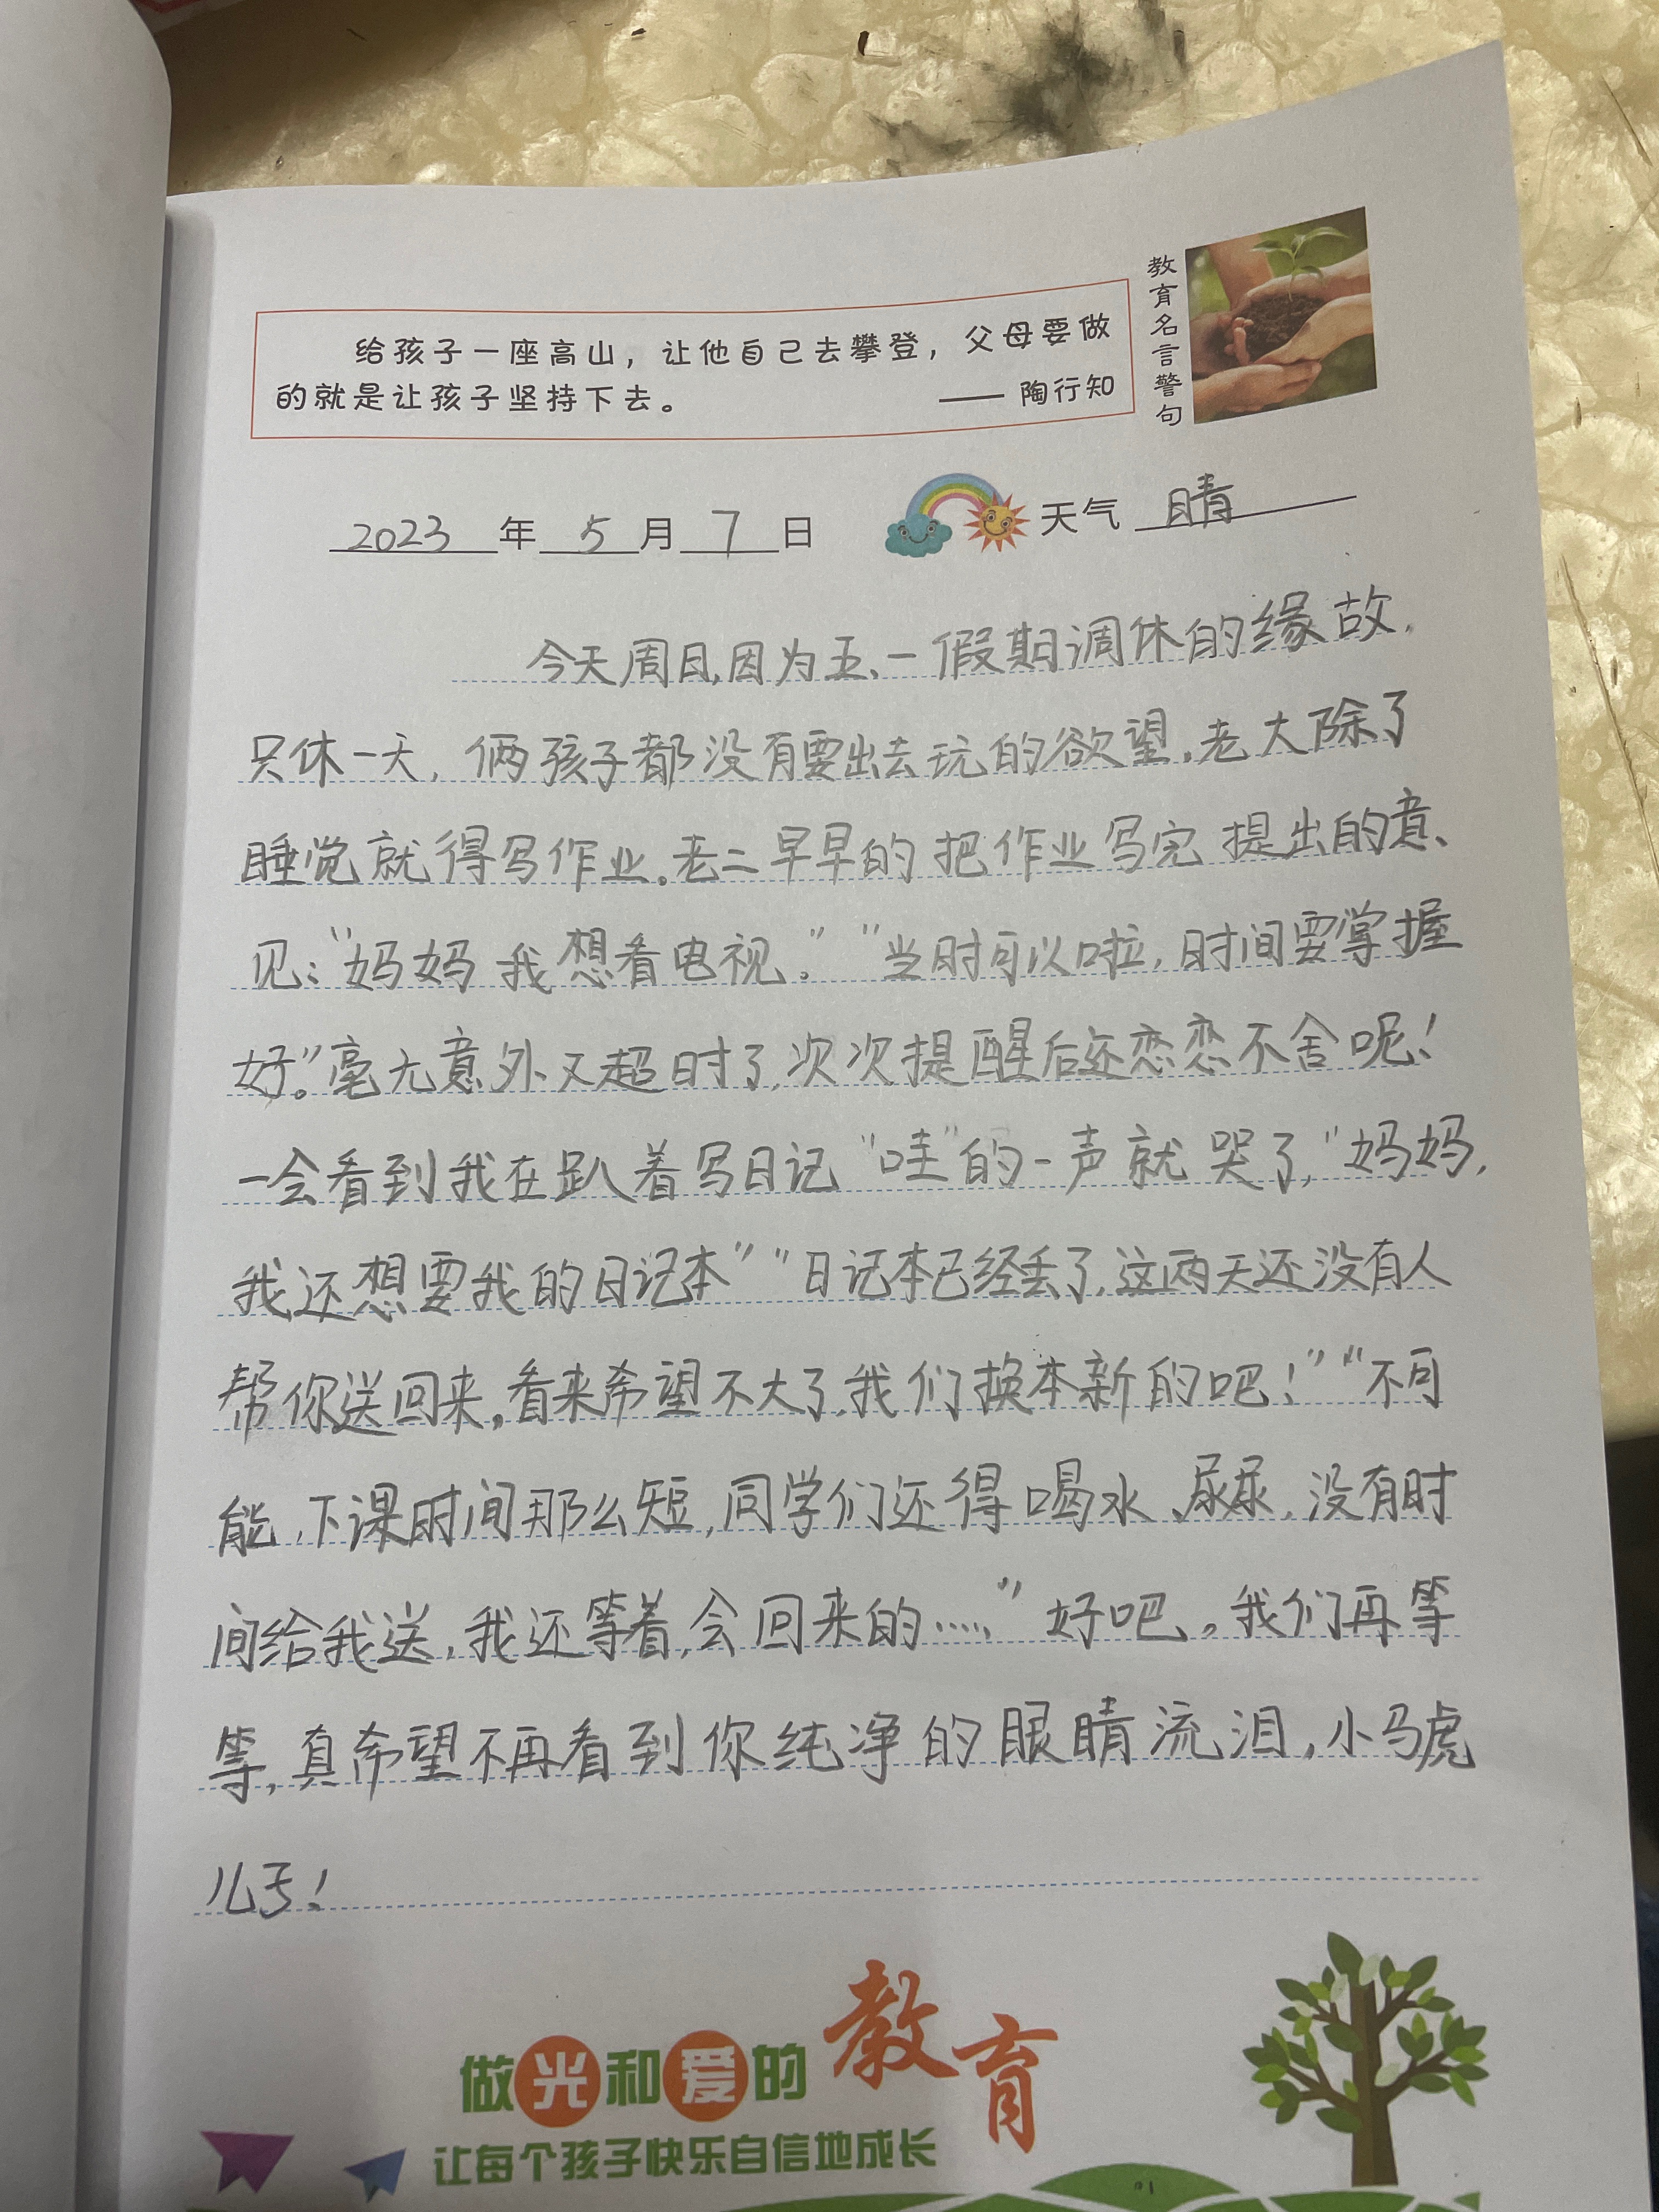 教育名言警句
给孩子一座高山，让他自己去攀登，父母要做
的就是让孩子坚持下去。 —— 陶行知
2023 年 5 月 7 日 天气 晴
今天周日，因为五、一假期调休的缘故，
只休一天，俩孩子都没有要出去玩的欲望，老大除了
睡觉就得写作业。老二早早的把作业写完提出的意、
见：“妈妈我想看电视。”“当时可以啦，时间要掌握
好。”毫无意外又超时了，次次提醒后还恋恋不舍呢！
一会看到我在趴着写日记“哇”的一声就哭了，“妈妈，
我还想要我的日记本”“日记本已经丢了，这两天还没有人
帮你送回来，看来希望不大了，我们换本新的吧！”“不可
能，下课时间那么短，同学们还得喝水、尿尿，没有时
间给我送，我还等着，会回来的……”好吧。我们再等
等，真希望不再看到你纯净的眼睛流泪，小马虎
儿亏！
做光和爱的教育
让每个孩子快乐自信地成长